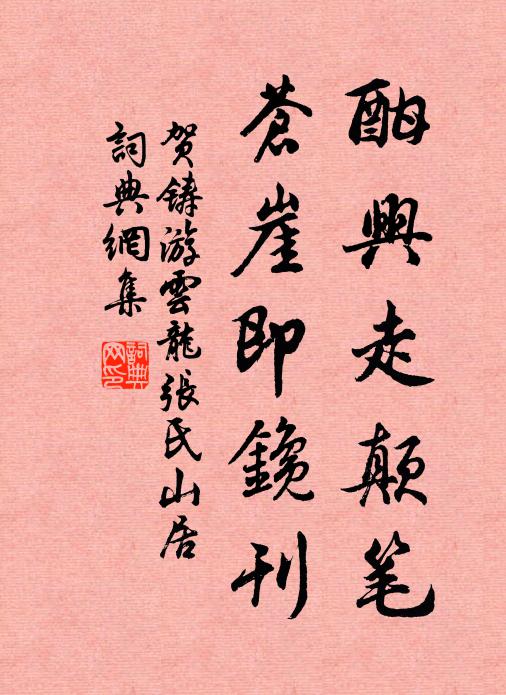 酣興走颠笔
蒼崖即鑱刊
贺铸游雲龍張氏山居
詞典網集
詞典网印